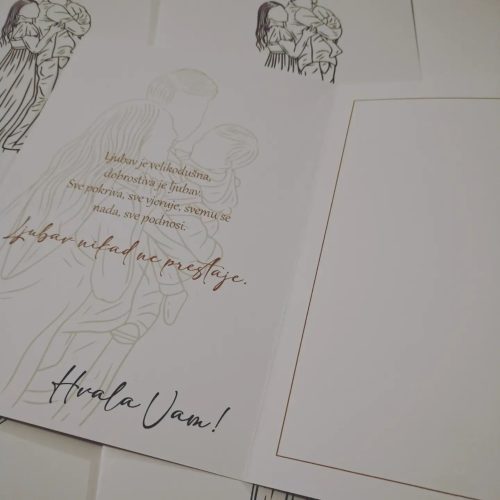 Ljubav je velikodušna,
dobrostiva je ljubav.
Sve pokriva, sve vjeruje, svemu se
nada, sve podnosi.
Ljubav nikad ne prestaje.
Hvala Vam!